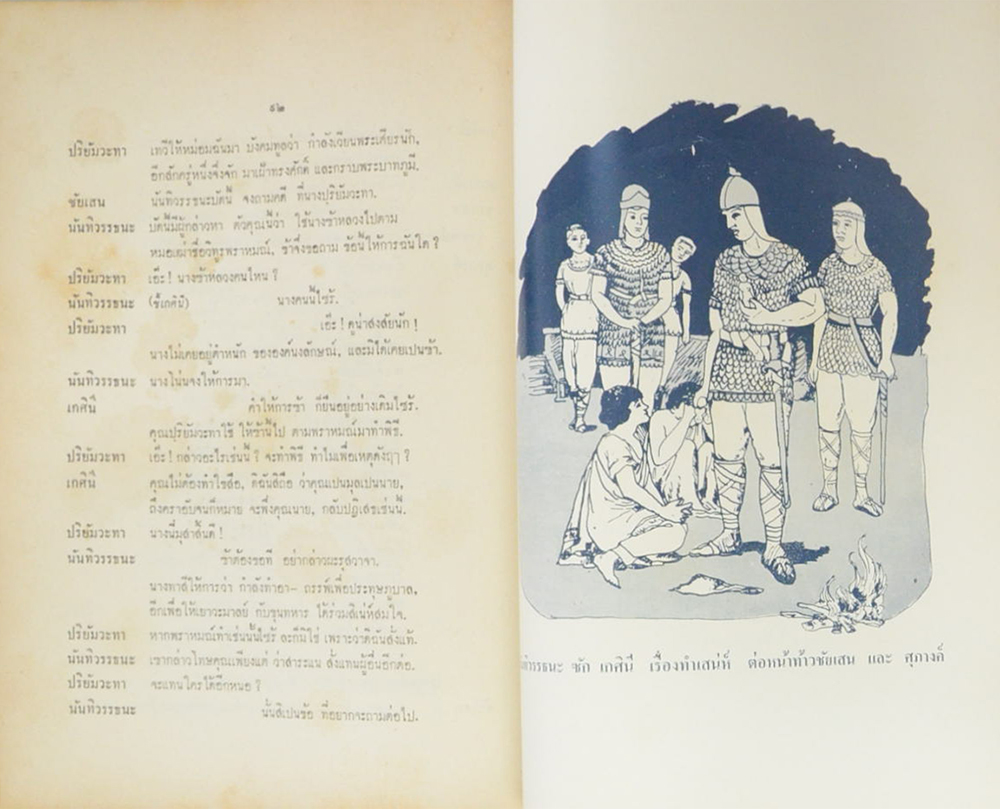 ๑๒
ปริยัมวะทา เทวีให้หม่อมฉันมา บังคมทูลว่า กำลังเวียนพระเศียรนัก,
อีกสักครู่หนึ่งจึ่งจัก มาเฝ้าทรงศักดิ์ และกราบพระบาทภูมี.
ชัยเสน นันทิวรรธนะบัดนี้ จงถามคดี ที่นางปริยัมวะทา.
นันทิวรรธนะ บัดนี้มีผู้กล่าวหา ตัวคุณนี้ว่า ใช้นางข้าหลวงไปตาม
หมอเฒ่าชื่อวิทูรพราหมณ์, ข้าจึ่งขอถาม ข้อนี้ให้การฉันใด ?
ปริยัมวะทา เอ๊ะ ! นางข้าหลวงคนไหน ?
นันทิวรรธนะ (ชี้เกศินี) นางคนนี้ไซร้.
ปริยัมวะทา เอ๊ะ ! ดูน่าสงสัยนัก !
นางไม่เคยอยู่ตำหนัก ขององค์นงลักษณ์, และมิได้เคยเปนข้า.
นันทิวรรธนะ นางโน่นจงให้การมา.
เกศินี คำให้การข้า ก็ยืนอยู่อย่างเดิมไซร้.
คุณปริยัมวะทาใช้ ให้ข้านี้ไป ตามพราหมณ์มาทำพิธี.
ปริยัมวะทา เอ๊ะ ! กล่าวอะไรเช่นนี้ ? จะทำพิธี ทำไมเพื่อเหตุดังฤๅ ?
เกศินี คุณไม่ต้องทำไขสือ, ดิฉันสิถือ ว่าคุณเปนมูลเปนนาย,
ถึงคราอับจนก็หมาย จะพึ่งคุณนาย, กลับปฏิเสธเช่นนี้.
ปริยัมวะทา นางนี่มุสาสิ้นดี !
นันทิวรรธนะ ข้าต้องขอที อย่ากล่าวผะรุสวาจา.
นางทาสีให้การว่า กำลังทำอา– ถรรพ์เพื่อประทุษภูบาล,
อีกเพื่อให้เยาวะมาลย์ กับขุนทหาร ได้ร่วมสิเน่ห์สมใจ.
ปริยัมวะทา หากพราหมณ์ทำเช่นนั้นไซร้ ละก็มิใช่ เพราะว่าดิฉันสั่งแท้.
นันทิวรรธนะ เขากล่าวโทษคุณเพียงแต่ ว่าสาระแน สั่งแทนผู้อื่นอีกต่อ.
ปริยัมวะทา จะแทนใครได้อีกหนอ ?
นันทิวรรธนะ นั้นสิเปนข้อ ที่อยากจะถามต่อไป.
วรรธนะ ซัก เกศินี เรื่องทำเสน่ห์ ต่อหน้าท้าวชัยเสน และ ศุภางค์